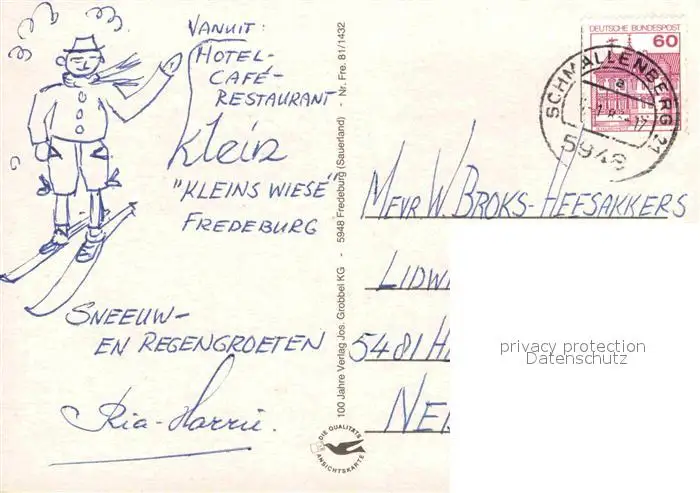 VANUIT:
HOTEL-
CAFÉ-
RESTAURANT
Klein
"KLEINS WIESE"
FREDEBURG
SNEEUW-
EN REGENGROETEN
Ria-Harrie.
100 Jahre Verlag Jos. Grobbel KG - 5948 Fredeburg (Sauerland) - Nr. Fre. 81/1432
DIE QUALITÄTS
ANSICHTSKARTE
DEUTSCHE BUNDESPOST
60
SCHMALLENBERG 21
a
5948
MEVR W. BROKS-HEESAKKERS
LIDWI
5481 H
NE
privacy protection
Datenschutz